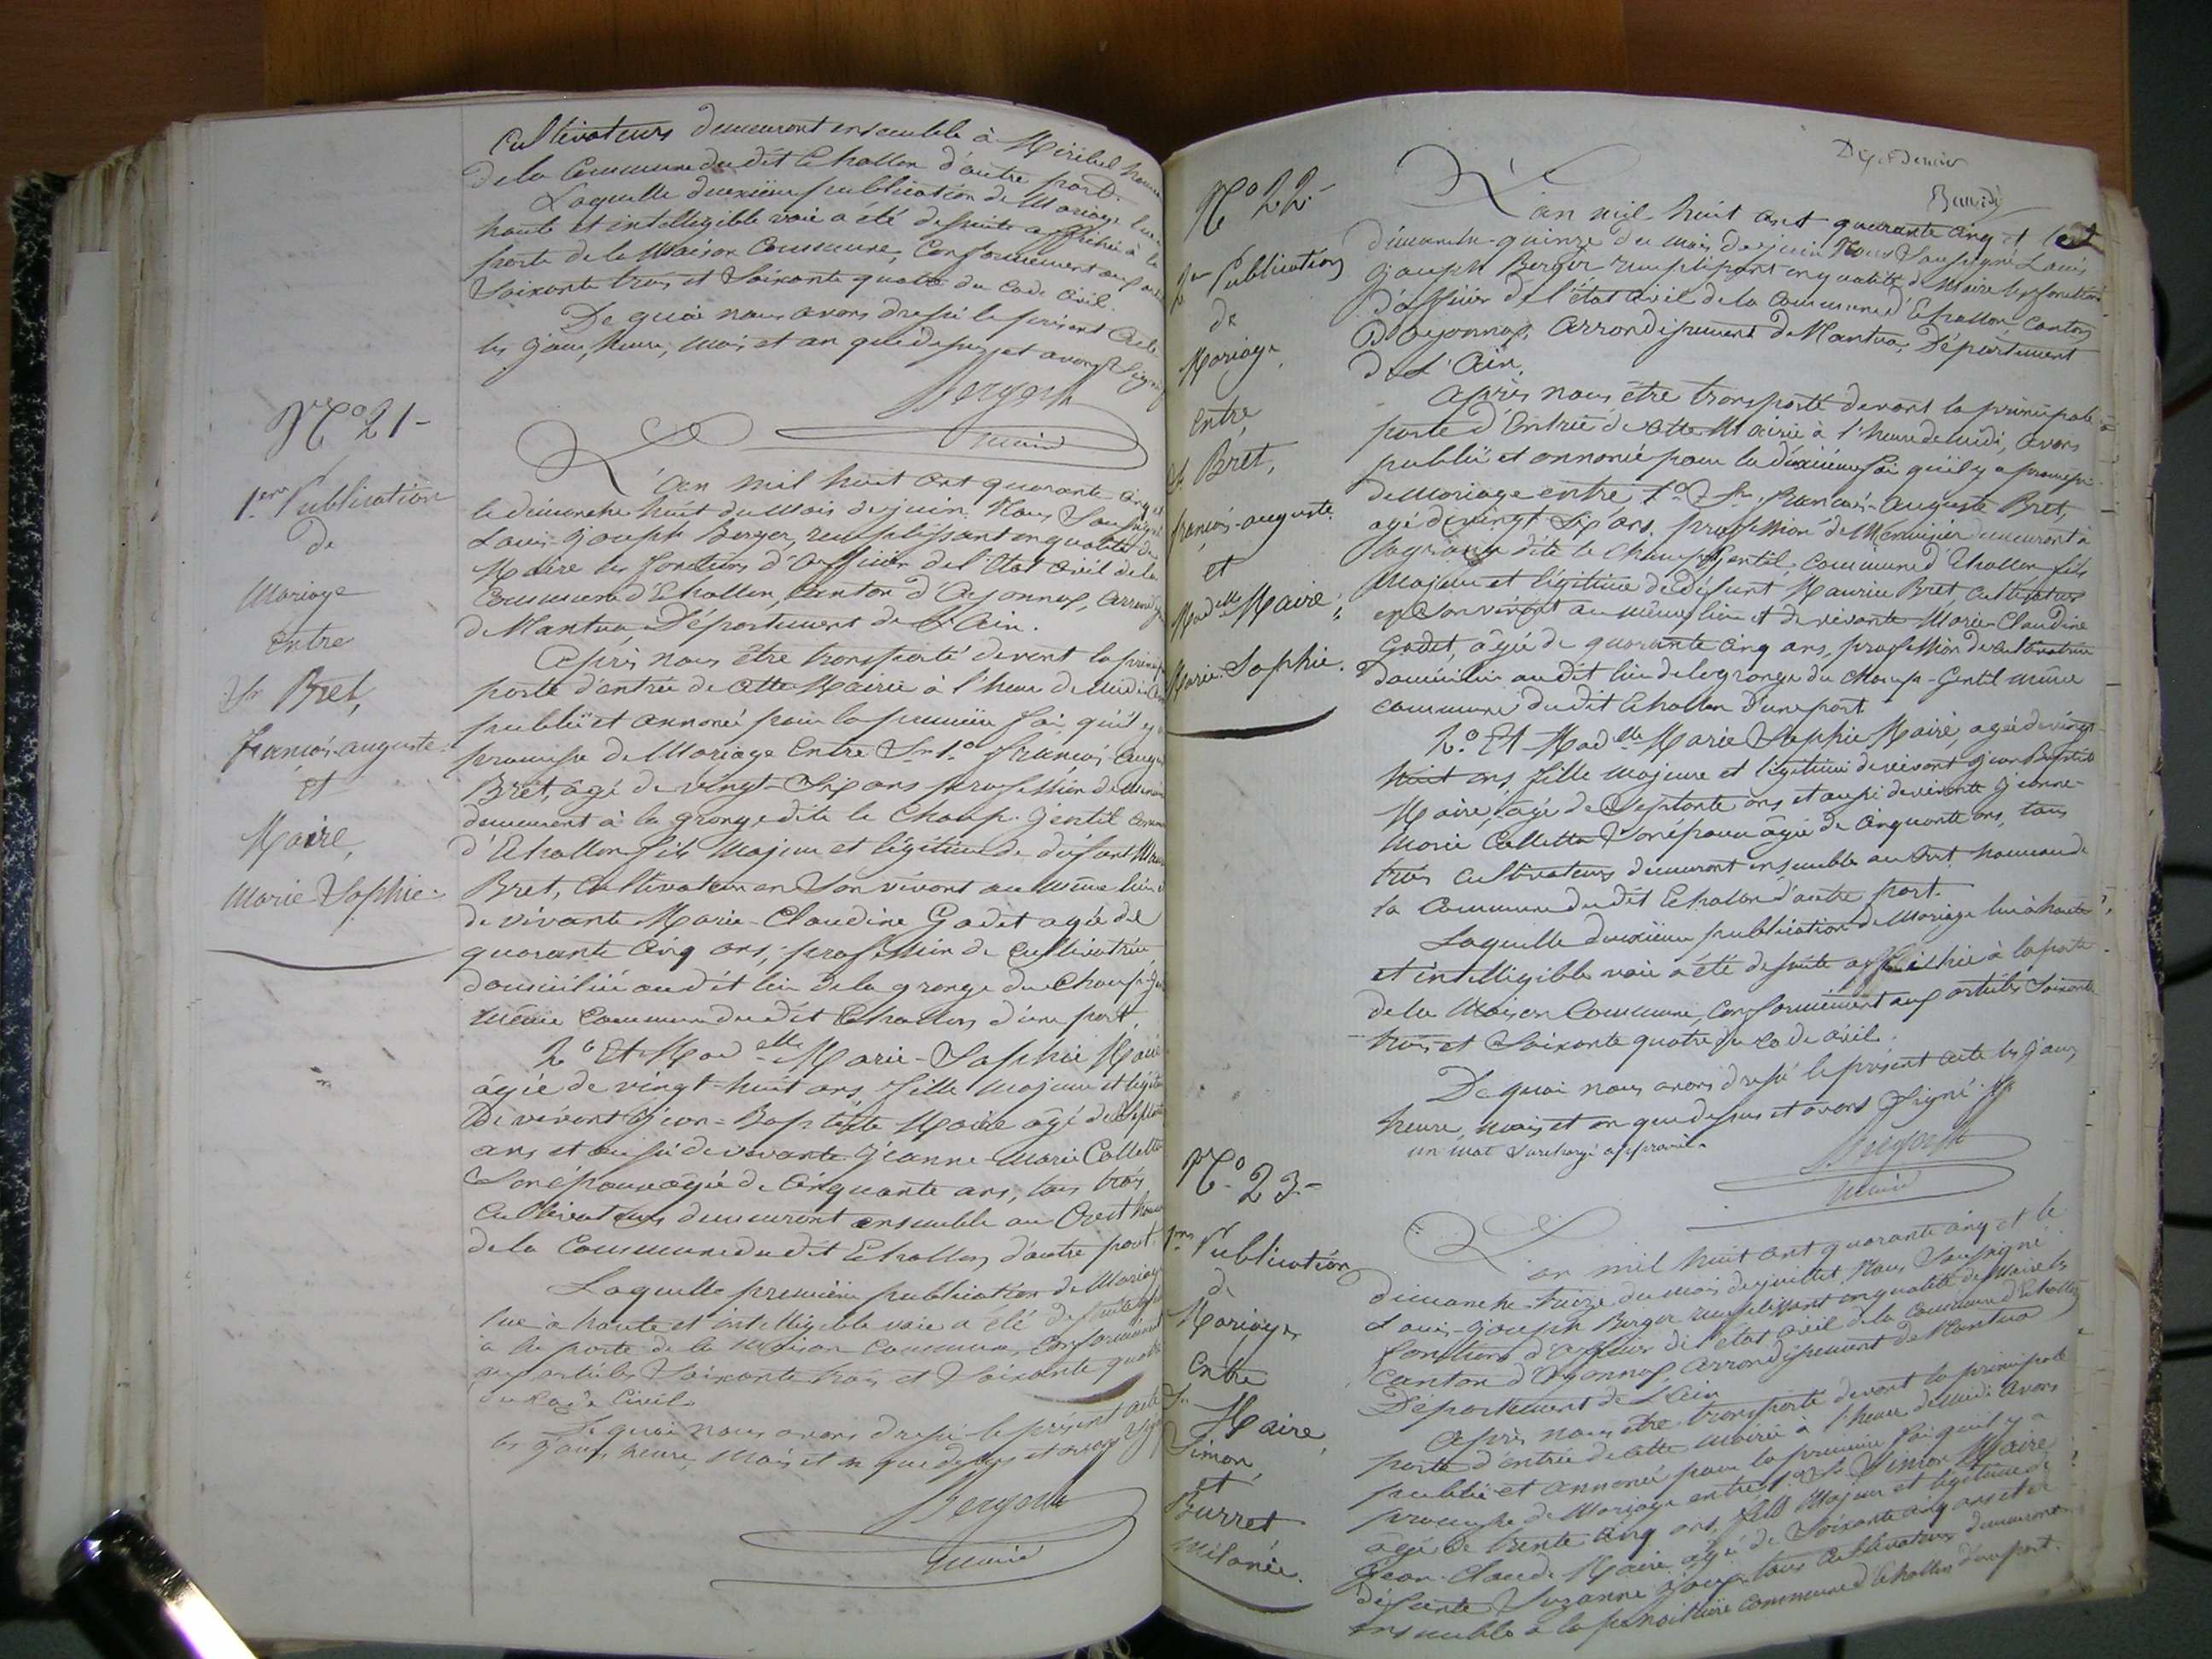 Cultivateurs demeurant ensemble à Miribel hameau
de la Commune du dit Echallon d'autre part.
Laquelle deuxième publication de Mariage lue à
haute et intelligible voie a été de suite affichée à la
porte de la Maison Commune, Conformément aux art
Soixante trois et Soixante quatre du Code Civil.
De quoi nous avons dressé le présent Acte
les jour, heure, mois et an que dessus et avons Signé
Berger
maire
N° 21-
1ère Publication
de
Mariage
entre
Sr Bret,
françois-auguste
et
Maire,
Marie Sophie
L'an mil huit cent quarante cinq et
le dimanche huit du mois de juin. Nous Soussigné
Louis-Joseph Berger, remplissant en qualité de
Maire les fonctions d'Officier de l'Etat civil de la
Commune d'Echallon, Canton d'Oyonnax, arrondis
de Nantua, Département de L'Ain.
Après nous être transporté devant la princip
porte d'entrée de cette Mairie à l'heure de midi avo
publié et annoncé pour la première foi qu'il y a
promesse de Mariage Entre Sr 1° françois-Augus
Bret, âgé de vingt-Six ans profession de Menui
demeurant à la grange dite le Champ-Gentil comm
d'Echallon fils Majeur et légitime de défunt Mau
Bret, Cultivateur en Son vivant au même lieu et
de vivante Marie-Claudine Godet agée de
quarante Cinq ans, profession de Cultivatrice
domiciliée au dit lieu de la grange du Champ-Ge
même Commune du dit Echallon d'une part.
2° Et Madelle Marie-Sophie Maire
âgée de vingt-huit ans, fille Majeure et légiti
De vivant Jean-Baptiste Maire âgé de Septante
ans et aussi de vivante Jeanne-Marie Collette
Son épouse agée de Cinquante ans, tous trois
Cultivateurs demeurant ensemble au Cret hame
de la Commune du dit Echallon d'autre part.
Laquelle première publication de Mariage
lue à haute et intelligible voie a été de suite affi
à la porte de la Maison Commune, Conformément
aux articles Soixante trois et Soixante quatre
du Code Civil.
De quoi nous avons dressé le présent acte
les jour, heure, Mois et an que dessus et avons Sign
Berger
maire
N° 22-
2me Publication
de
Mariage
entre
Sr Bret,
françois-auguste
et
Madelle Maire,
Marie-Sophie.
L'an mil huit cent quarante cinq et le
dimanche-quinze du mois de juin Nous Soussigné Louis
Joseph Berger remplissant en qualité de Maire les fonctions
d'officier de l'état civil de la Commune d'Echallon, Canton
d'Oyonnax, arrondissement de Nantua, Département
de L'Ain.
Après nous être transporté devant la principale
porte d'Entrée de cette Mairie à l'heure de midi, avons
publié et annoncé pour la deuxième foi qu'il y a promesse
de Mariage entre 1° Sr. françois-Auguste Bret,
agé de vingt Six ans, profession de Menuisier demeurant à
la grange dite le Champ Gentil, Commune d'Echallon fils
Majeur et légitime de défunt Maurice Bret Cultivateur
en Son vivant au même lieu et de vivante Marie-Claudine
Godet, âgée de quarante cinq ans, profession de Cultivatrice
Domiciliée au dit lieu de la grange du Champ-Gentil même
commune du dit Echallon d'une part.
2° Et Madelle Marie Sophie Maire, agée de vingt-
huit ans, fille Majeure et légitime de vivant Jean Baptiste
Maire, agé de Septante ans et aussi de vivante Jeanne-
Marie Collette Son épouse âgée de Cinquante ans, tous
trois Cultivateurs demeurant ensemble au Cret hameau de
la Commune du dit Echallon d'autre part.
Laquelle deuxième publication de Mariage lue à haute
et intelligible voie a été de suite affichée à la porte
de la Maison Commune, Conformément aux articles Soixante
trois et Soixante quatre du Code civil.
De quoi nous avons dressé le présent acte les jour,
heure, mois et an que dessus et avons Signé.
un mot Surchargé approuvé.
Berger
maire
N° 23-
1ère Publication
de
Mariage
Entre
Sr
Maire,
Simon,
et
Burret
Mélanie.
L'an mil huit cent quarante cinq et le
Dimanche-treize du mois de juillet. Nous Soussigné
Louis-Joseph Berger remplissant en qualité de Maire les
fonctions d'officier de l'état civil de la Commune d'Echallon
Canton d'Oyonnax, arrondissement de Nantua
Département de L'Ain
Après nous être transporté devant la principale
porte d'entrée de cette Mairie à l'heure de midi avons
publié et annoncé pour la première foi qu'il y a
promesse de Mariage entre 1° Sr Simon Maire
agé de trente cinq ans, fils Majeur et légitime de
Jean-Claude Maire agé de Soixante cinq ans et de
défunte Suzanne tous Cultivateurs demeurant
ensemble à la commune d'Echallon d'une part.